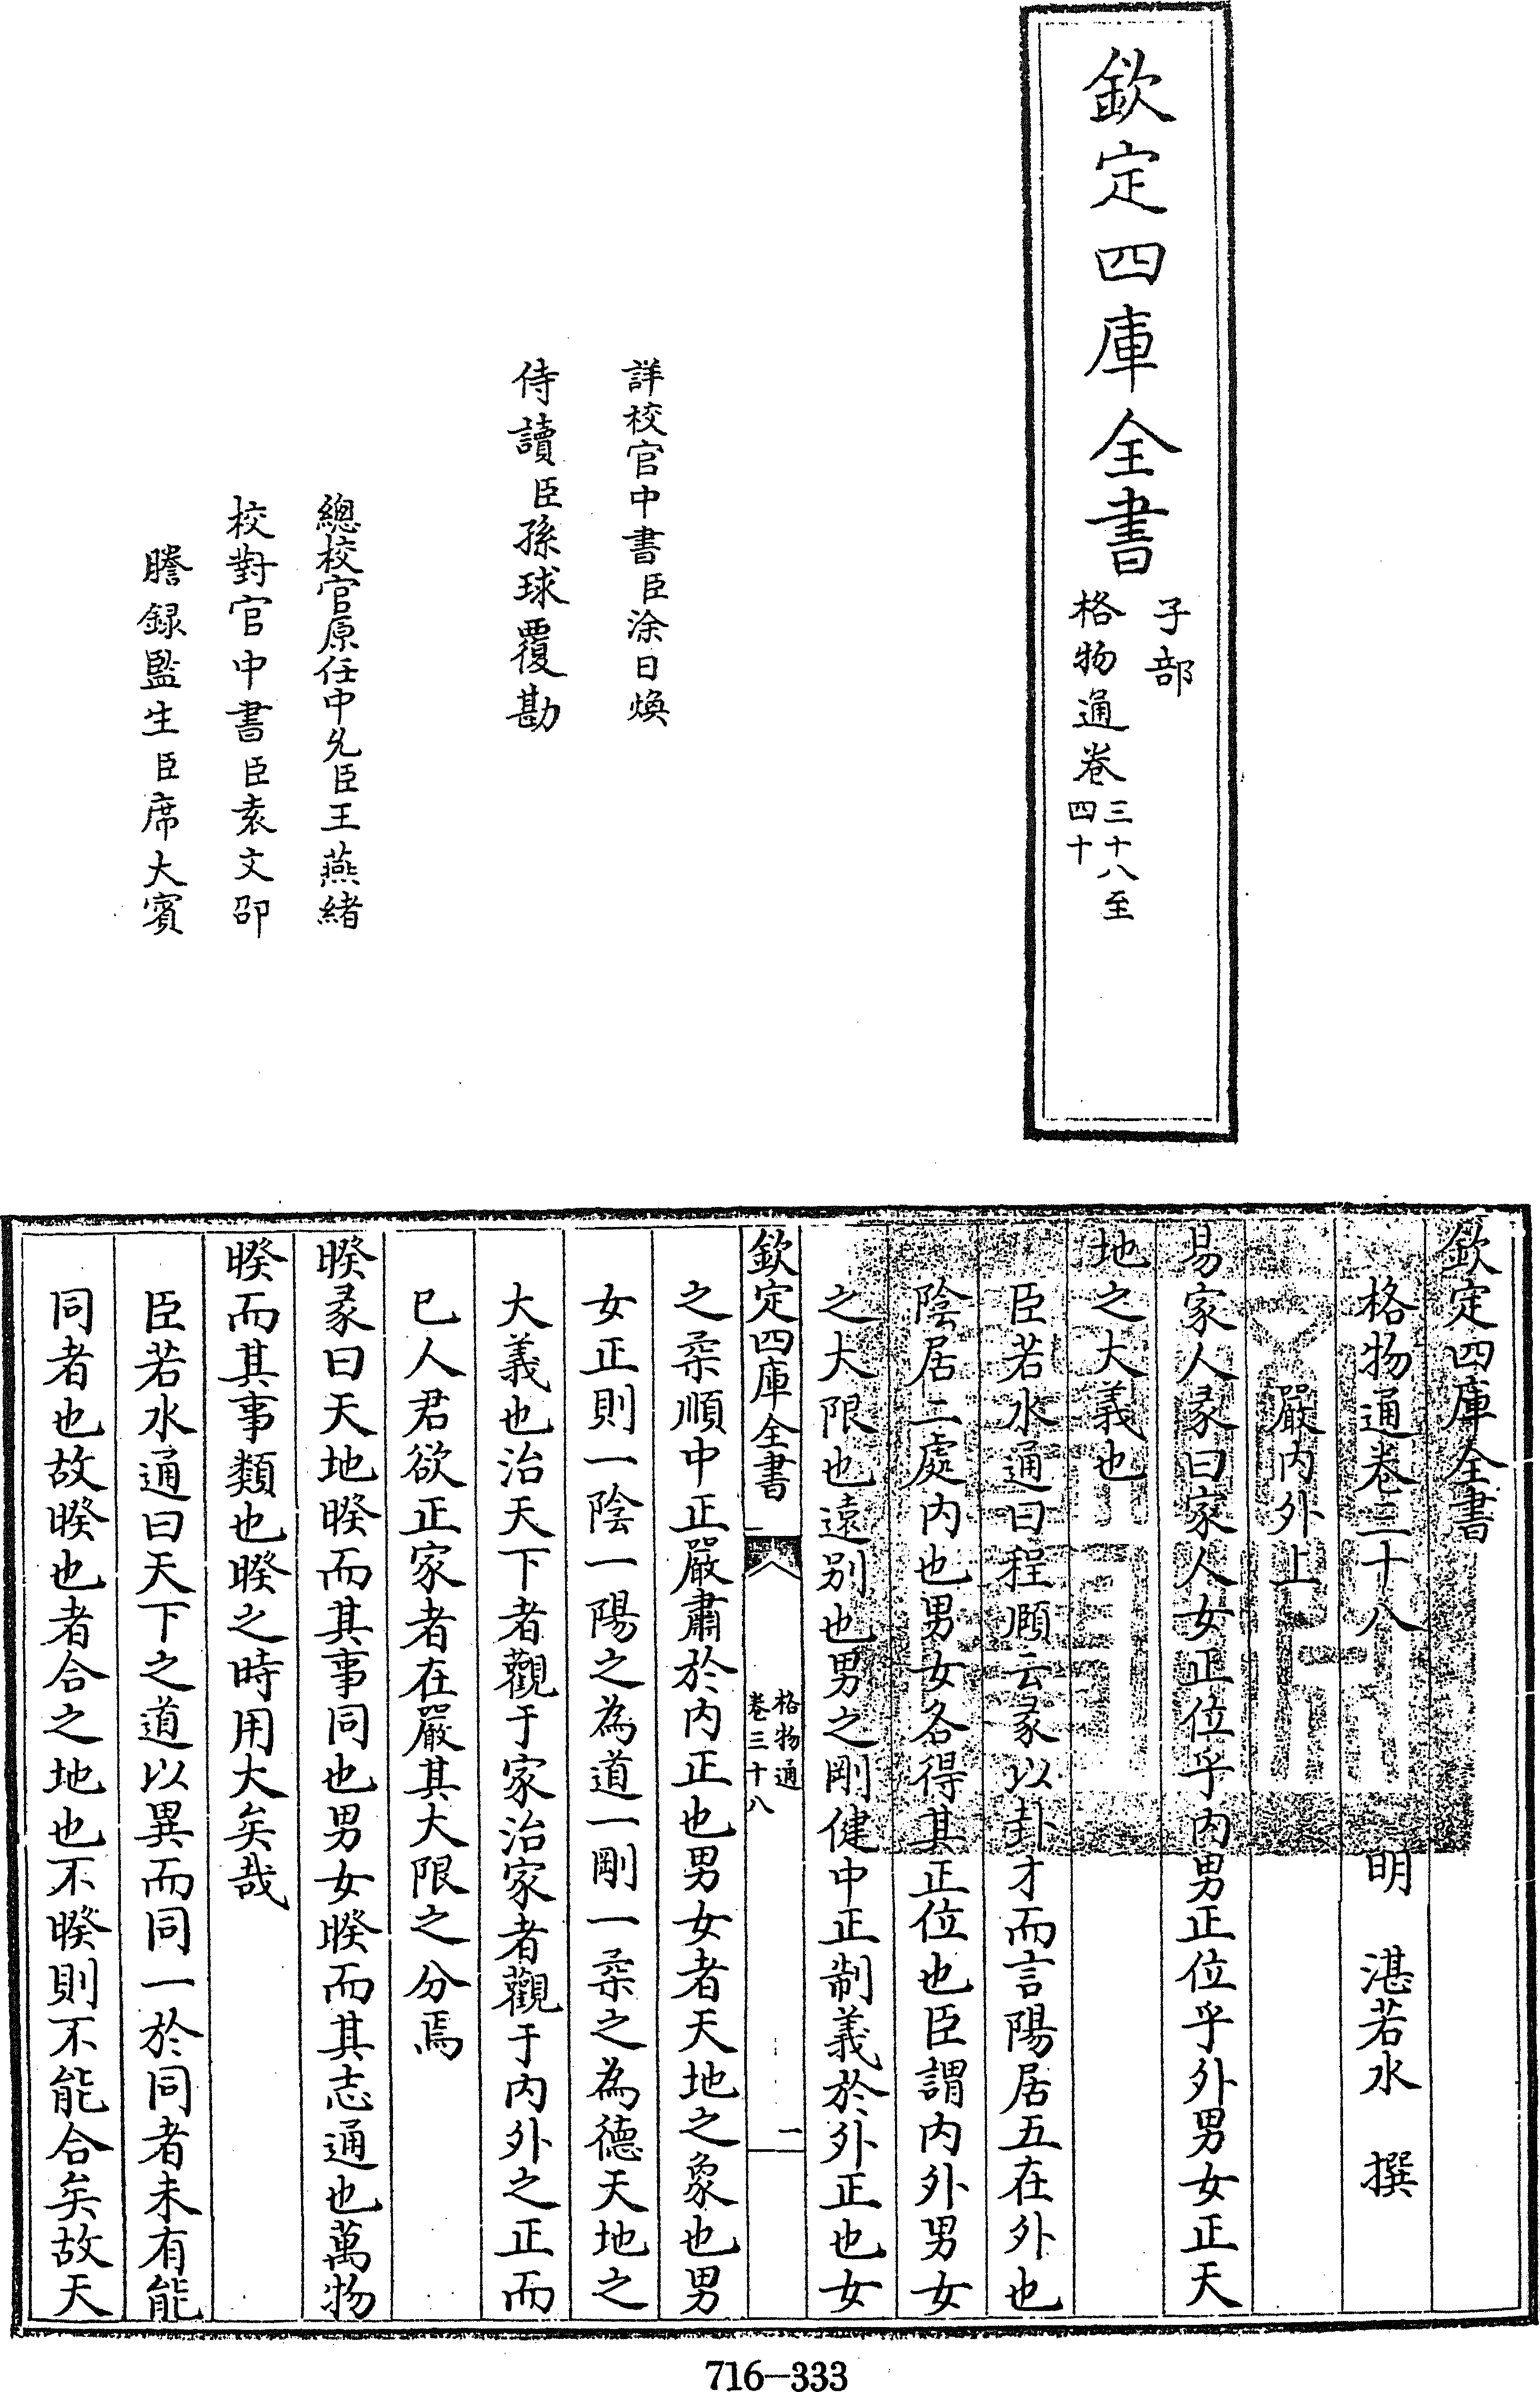 欽定四庫全書
子部
格物通卷
三十八至
四十
詳校官中書臣涂日煥
侍讀臣孫球覆勘
總校官原任中允臣王燕緒
校對官中書臣袁文邵
謄録監生臣席大賓
欽定四庫全書
格物通卷三十八
明 湛若水 撰
嚴内外上
易家人彖曰家人女正位乎内男正位乎外男女正天
地之大義也
臣若水通曰程頤云彖以卦才而言陽居五在外也
陰居二處内也男女各得其正位也臣謂内外男女
之大限也遠别也男之剛健中正制義於外正也女
欽定四庫全書
格物通
卷三十八
一
之柔順中正嚴肅於内正也男女者天地之象也男
女正則一陰一陽之為道一剛一柔之為德天地之
大義也治天下者觀于家治家者觀于内外之正而
已人君欲正家者在嚴其大限之分焉
睽彖曰天地睽而其事同也男女睽而其志通也萬物
睽而其事類也睽之時用大矣哉
臣若水通曰天下之道以異而同一於同者未有能
同者也故睽也者合之地也不睽則不能合矣故天
716-333